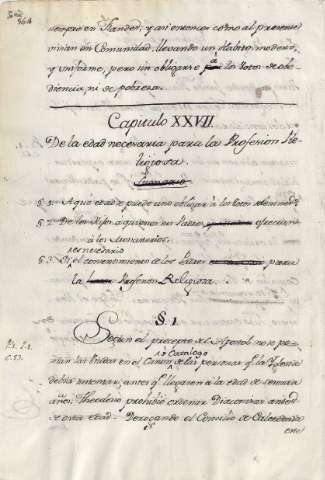 siempre en Flandes, y asi entonces como al presente
vivian en Comunidad, llevando un Habito modesto,
y uniforme, pero sin obligarse a los votos de obe
diencia, ni de pobreza.
Capitulo XXVII
De la edad necesaria para la Profesion Re
ligiosa.
Sumario
§ 1. A que edad se puede uno obligar à los votos solemnes
§ 2. De los Hijos, à quienes sus Padres ofrecian
à los Monasterios.
es necesario
§ 3. Si el consentimiento de los Padres para
la Profesion Religiosa.
§ 1.
Segun el precepto del Apostol no se po
o Catalogo
nian las Viudas en el Canon de las personas q.e la Iglesia
debia mantener, antes q.e llegasen à la edad de sesenta
años. Theodosio prohibió ordenar Diaconisas antes
de esta edad. Derogando el Concilio de Calcedonia